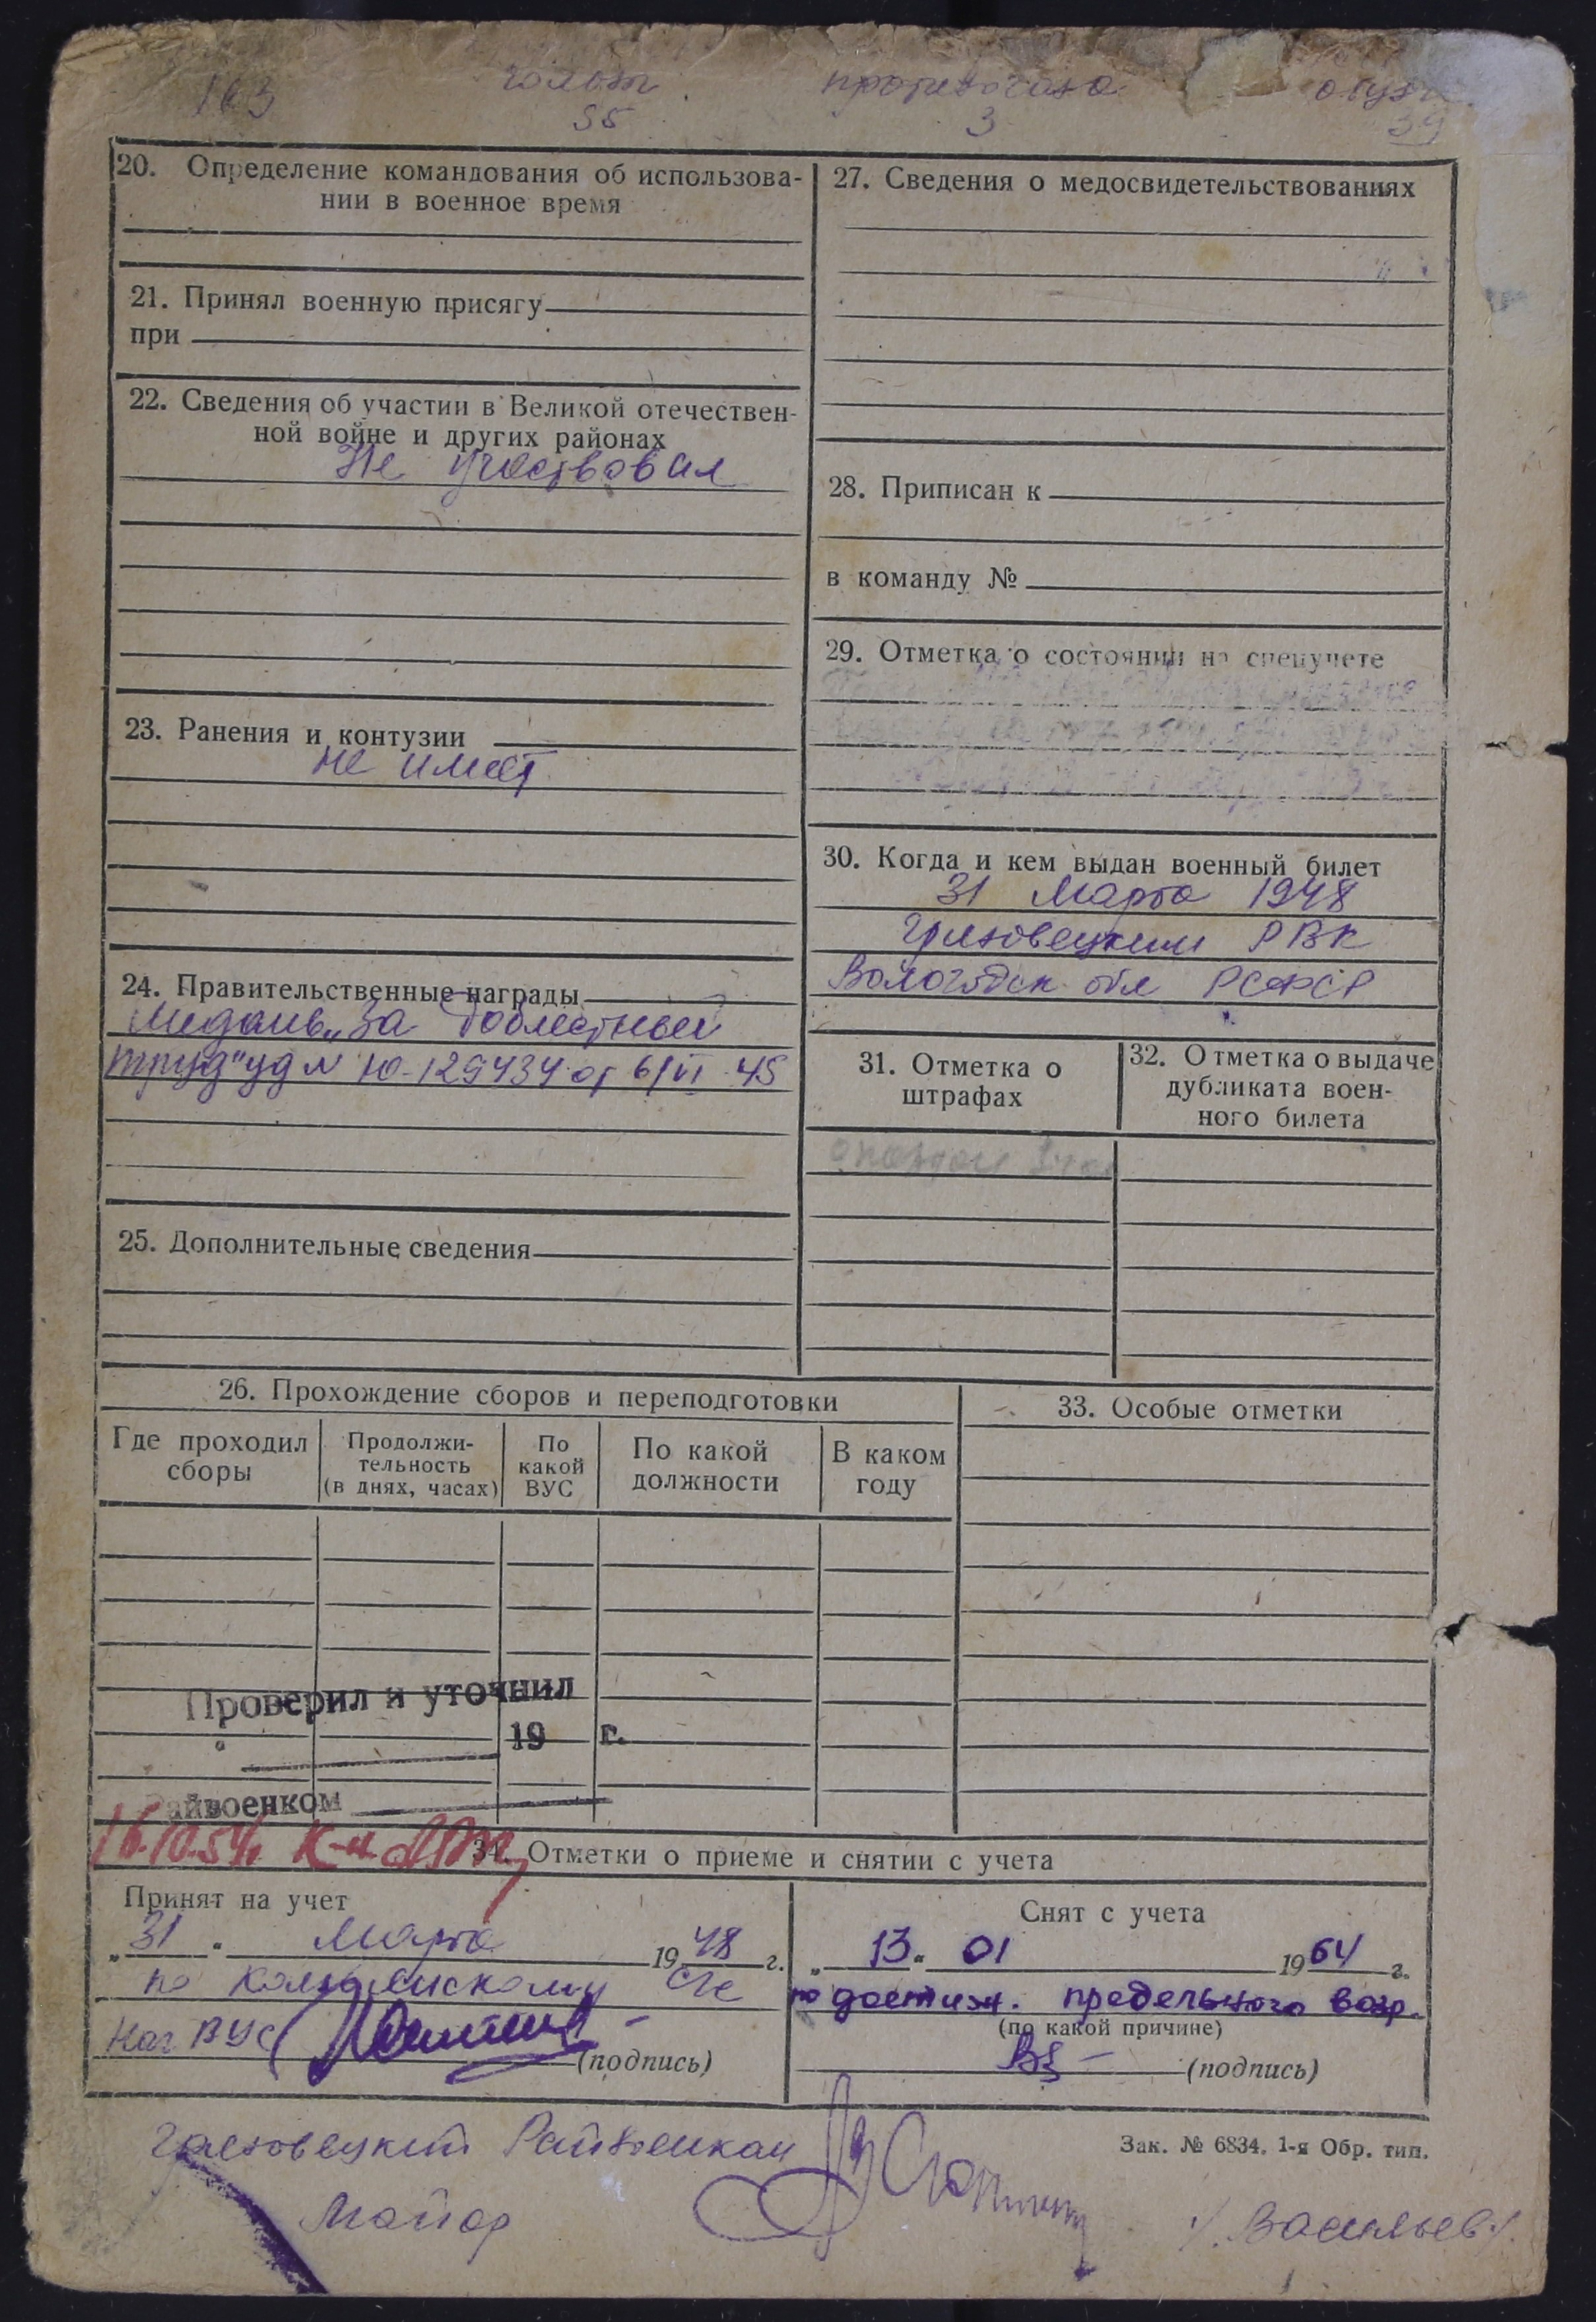 163
пропевогаза
35
3
39
20. Определение командования об использова-
нии в военное время
21. Принял военную присягу
при
22. Сведения об участии в Великой отечествен-
ной войне и других районах
Не участвовал
23. Ранения и контузии
не имеет
24. Правительственные награды
Медаль „За доблестный
труд" уд N Ю-129434 от 6/VI-45
25. Дополнительные сведения
27. Сведения о медосвидетельствованиях
28. Приписан к
в команду №
29. Отметка о состоянии на спецучете
30. Когда и кем выдан военный билет
31 Марта 1948
Грязовецким РВК
Вологодск обл РСФСР
31. Отметка о
штрафах
32. Отметка о выдаче
дубликата воен-
ного билета
26. Прохождение сборов и переподготовки
Где проходил
сборы
Продолжи-
тельность
(в днях, часах)
По
какой
ВУС
По какой
должности
В каком
году
33. Особые отметки
Проверил и уточнил
19 г.
Райвоенком
16.10.54г. к-н
34. Отметки о приеме и снятии с учета
Принят на учет
„31" Марта 1948 г.
по С/С
Нач ВУС
(подпись)
Снят с учета
„13" 01 1964 г.
по достиж. предельного возр.
(по какой причине)
(подпись)
Зак. № 6834. 1-я Обр. тип.
Грязовецкий Райвоенком
Майор
/Васильев/.